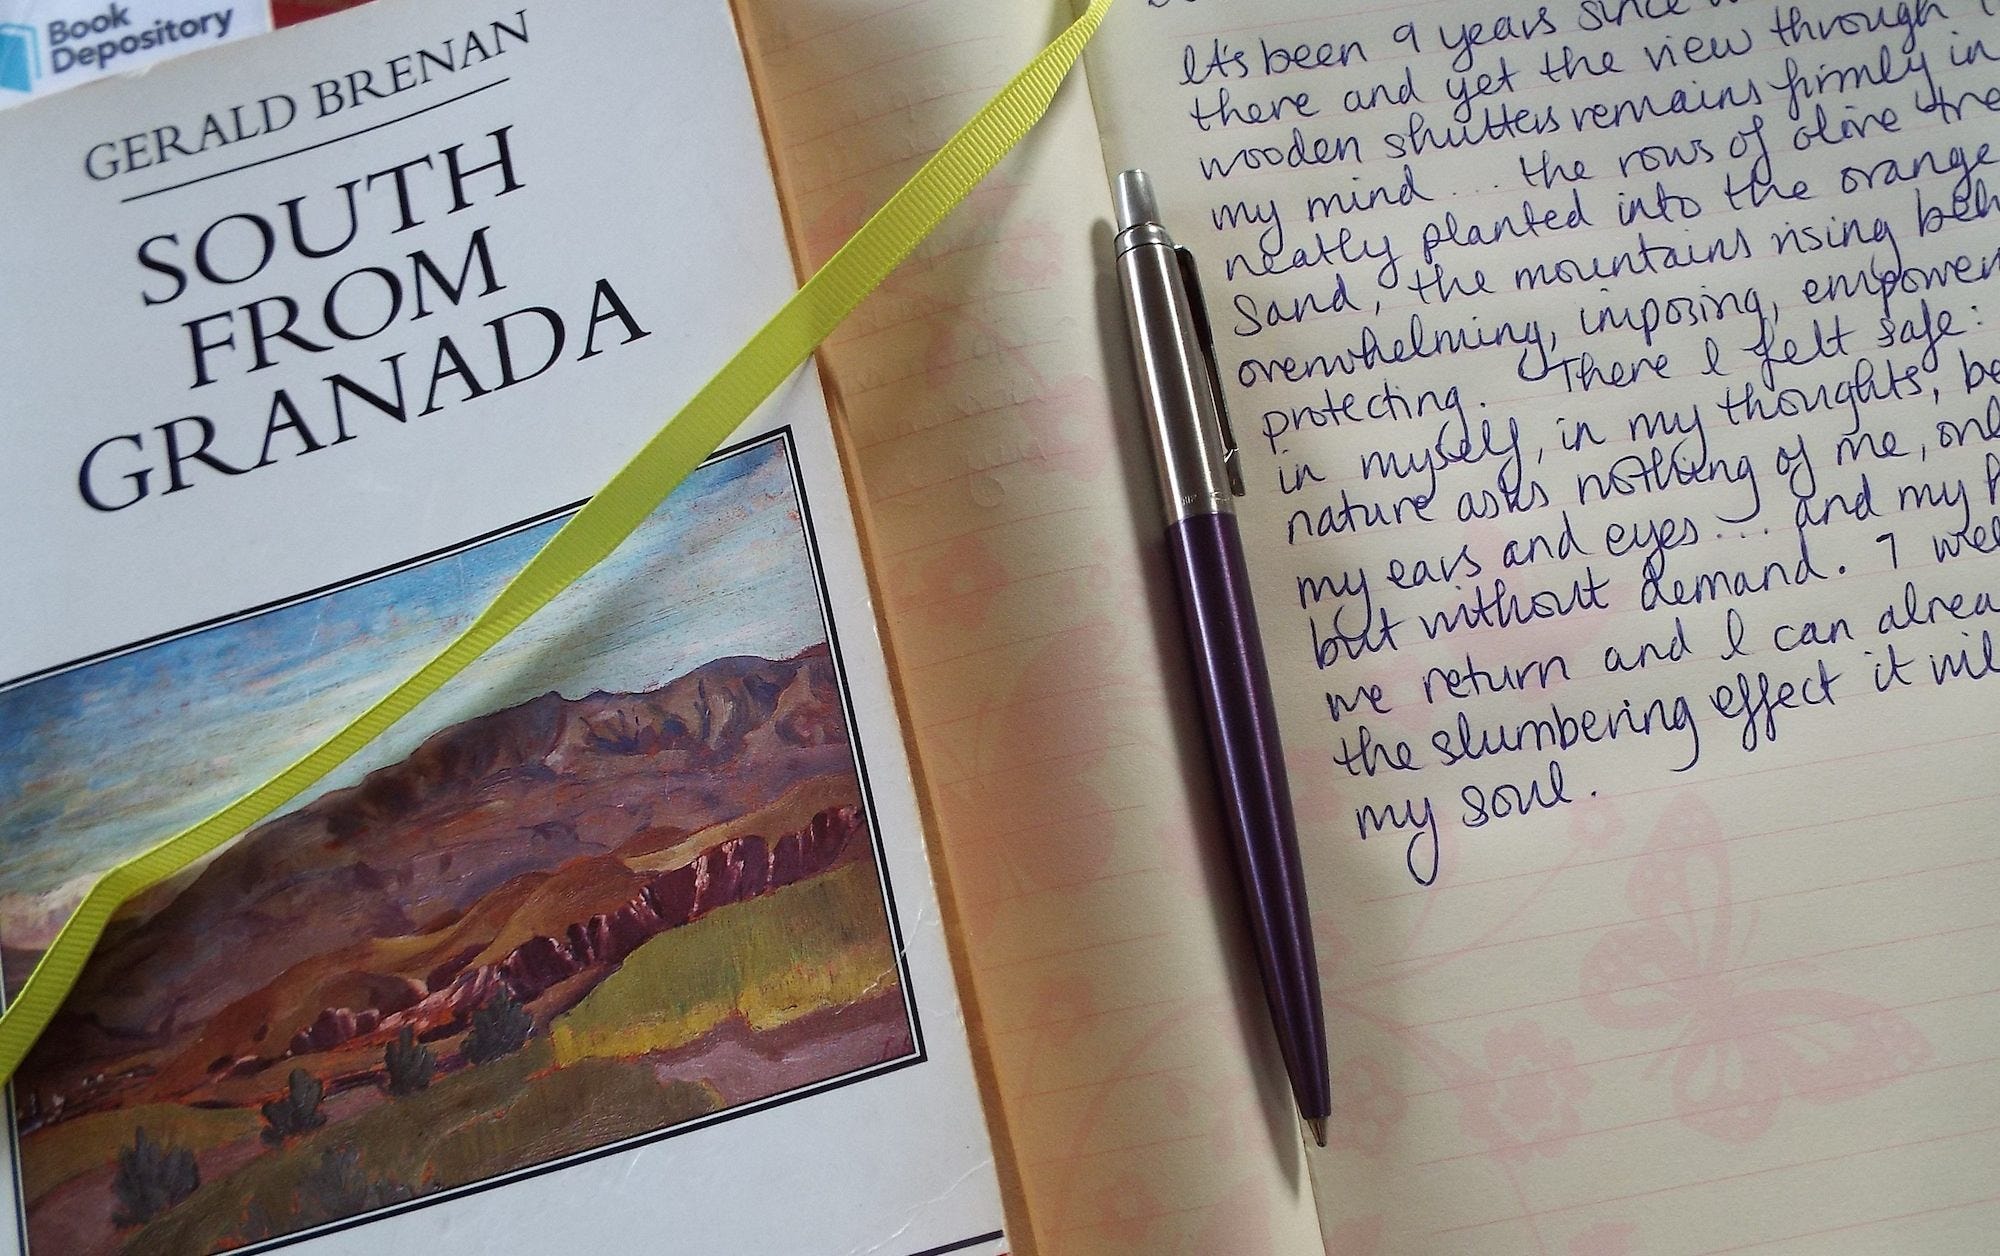 Book
Depository
GERALD BRENAN
SOUTH
FROM
GRANADA
It's been 9 years since
there and yet the view through
wooden shutters remains firmly in
my mind ... the rows of olive tre
neatly planted into the orange
sand, the mountains rising beh
overwhelming, imposing, empower
protecting. There I felt safe:
in myself, in my thoughts, be
nature asks nothing of me, onl
my ears and eyes ... and my h
but without demand. 7 wee
we return and I can alrea
the slumbering effect it wil
my soul.